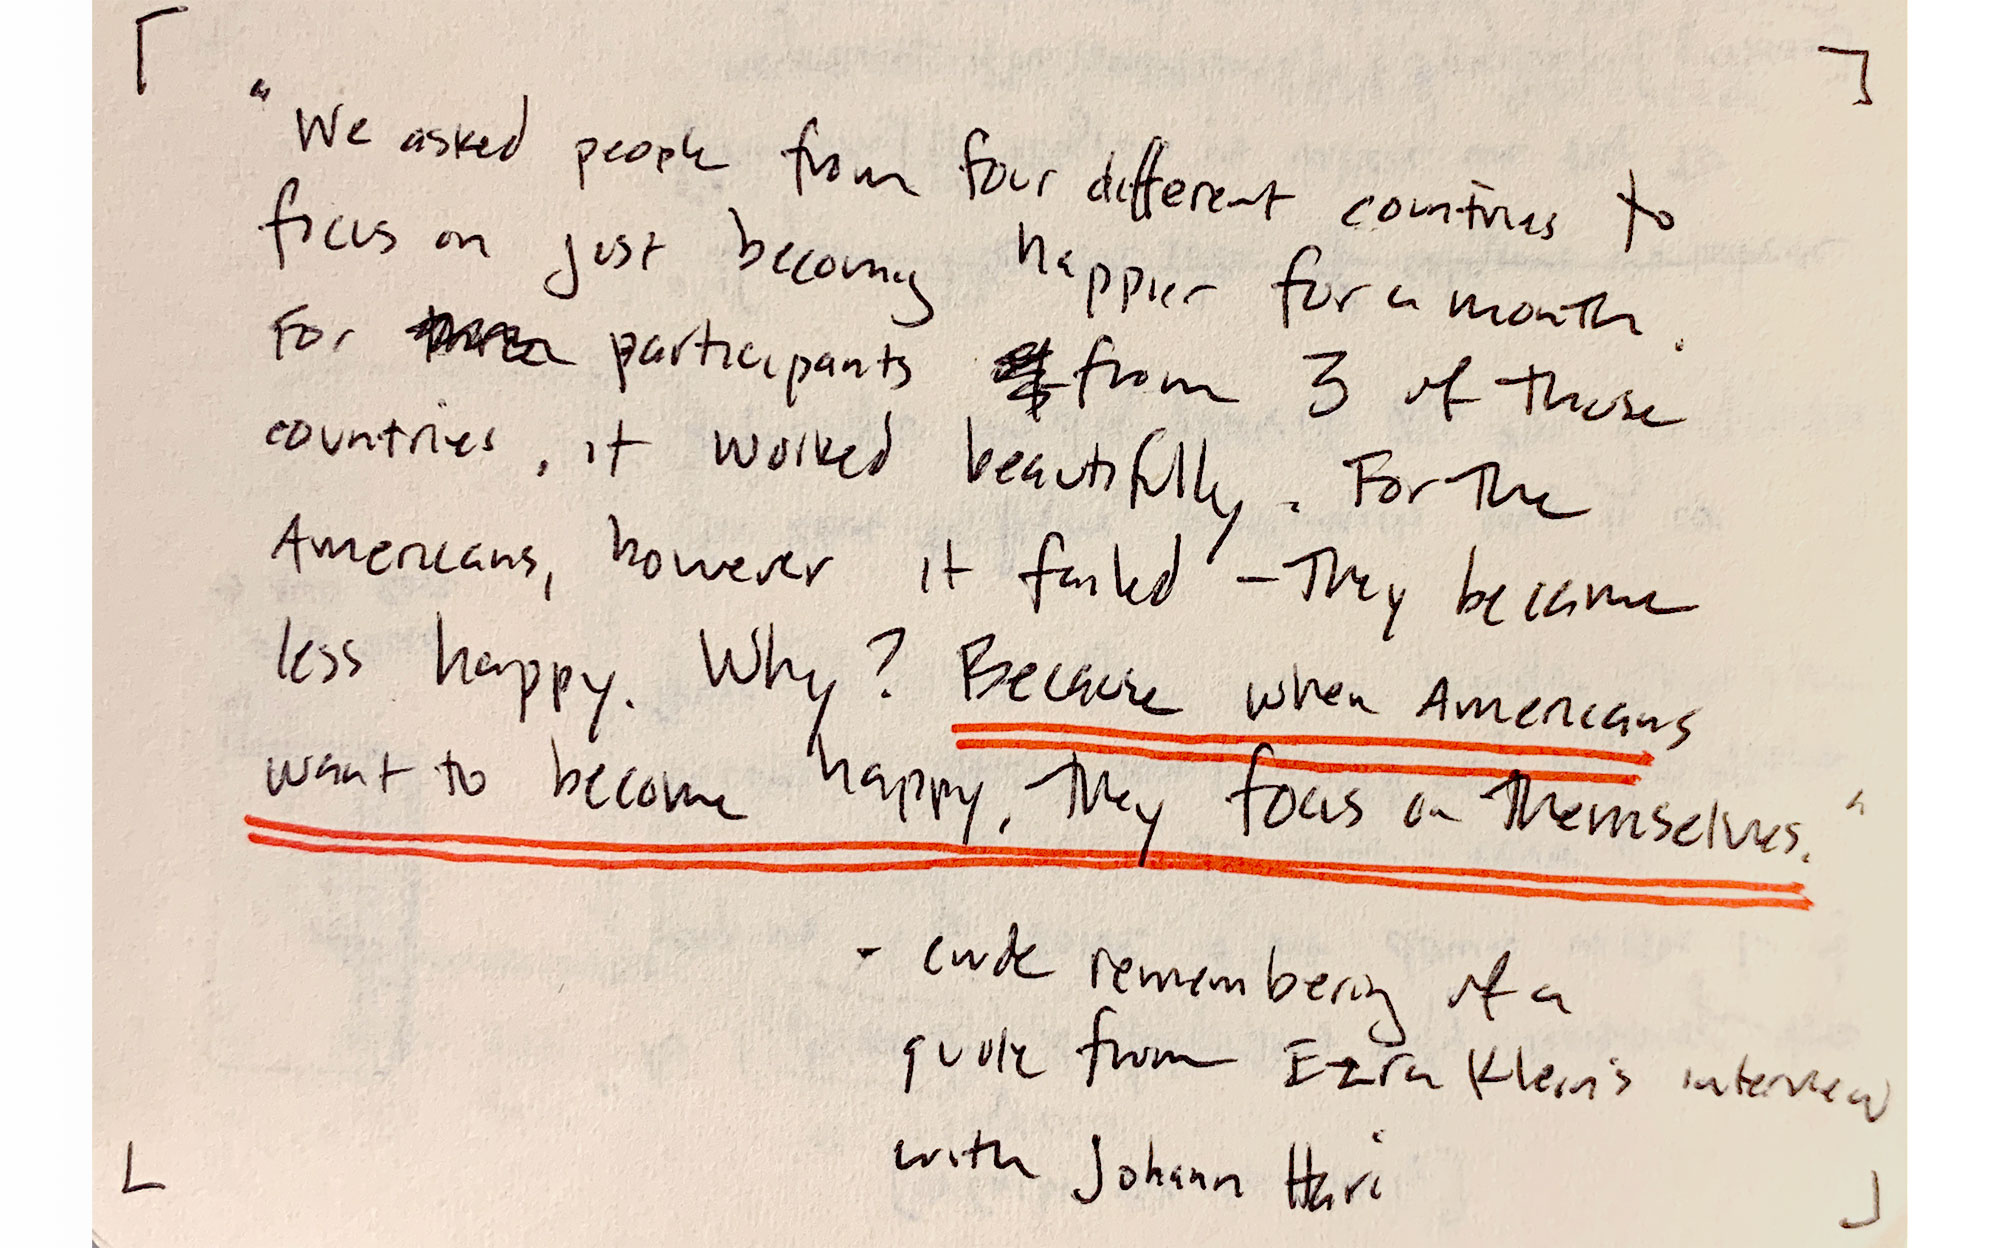 "We asked people from four different countries to
focus on just becoming happier for a month.
For participants from 3 of those
countries, it worked beautifully. For the
Americans, however it failed – They became
less happy. Why? Because when Americans
want to become happy, they focus on themselves."
- crude remembering of a
quote from Ezra Klein's interview
with Johann Hari